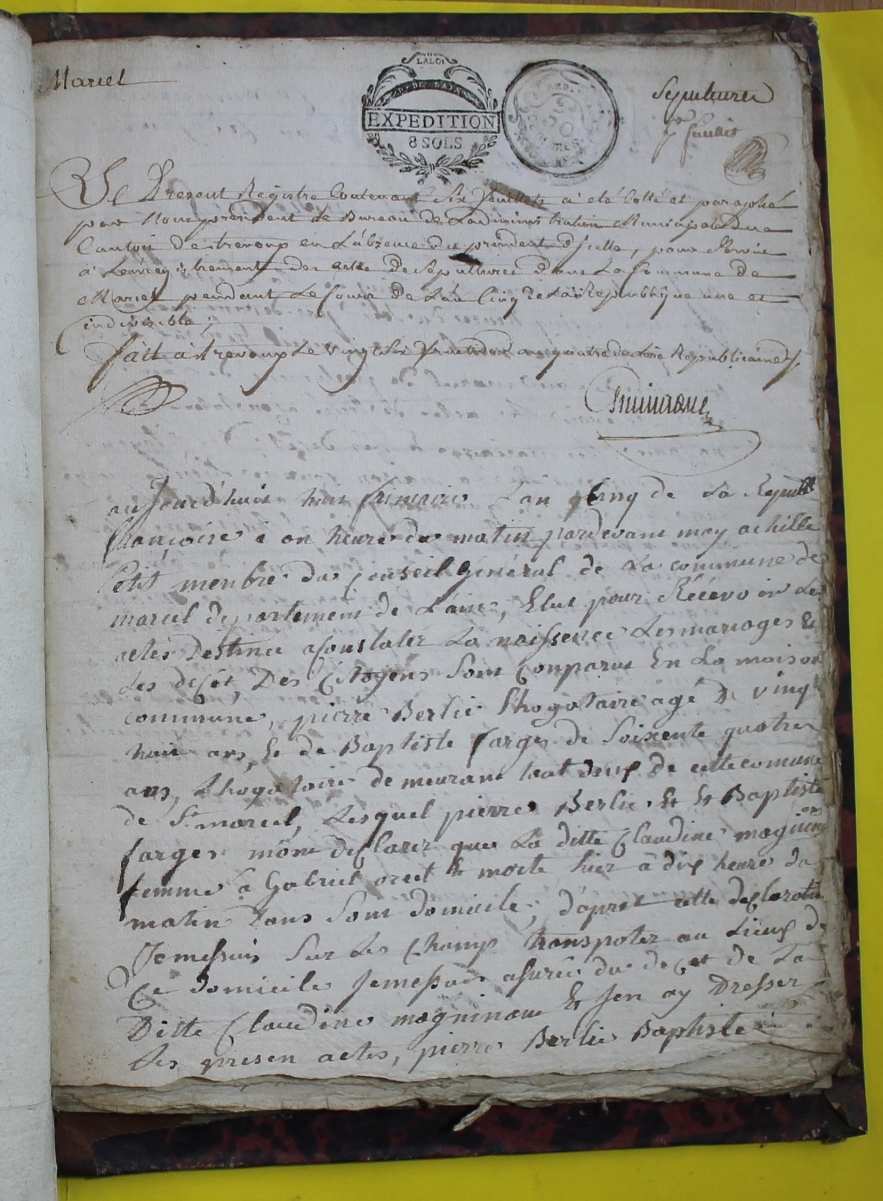 Marcel
LA LOI
DP. DE L'AIN
EXPEDITION
8 SOLS
Sepultures
feuillet
Le Present Registre Contenant Six feuillets a été Cotté et paraphé
par Nous president de Bureau de Ladministration Municipale du
Canton de trevoux en L'absence du president d'icelle, pour Servir
à Lenregistrement des actes De Sepultures dans La Commune de
Marcel pendant Le Cours de L'an Cinq de La Republique une et
indivisible,
fait à trevoux Le vingt Six fructidor an quatre de Lere Republicaine
aujourd'huit huit frimaire Lan Cinq de La Repub
françoise à on heure du matin pardevant moy achille
Petit menbre du Conseil général de La commune de
marcel departement de Lain, Elut pour Récévoir Le
actes Destinée aConstater La naissence Les mariages Et
Les decet, Des Citoyens Sont Conparut En La maison
commune, pierre Berlie age De vingt
huit ans, Et de Baptiste farges de Soixente quatre
ans, demeurant tout deux de cette comune
de St marcel, Lesquel pierre Berlie Et Et Baptiste
farges mont declarer que La ditte Claudine
femme à Gabriel Et morte hier à dix heure du
matin Dans Sont domicile, d'apret cette declaration
Jemessuis Sur Les Champ transpoter au Lieux de
Ce domicile Jemessuis asurée du decet de La
Ditte Claudine magninant Et Jen ay Dresser
Les presen actes, pierre Berlie Baptiste